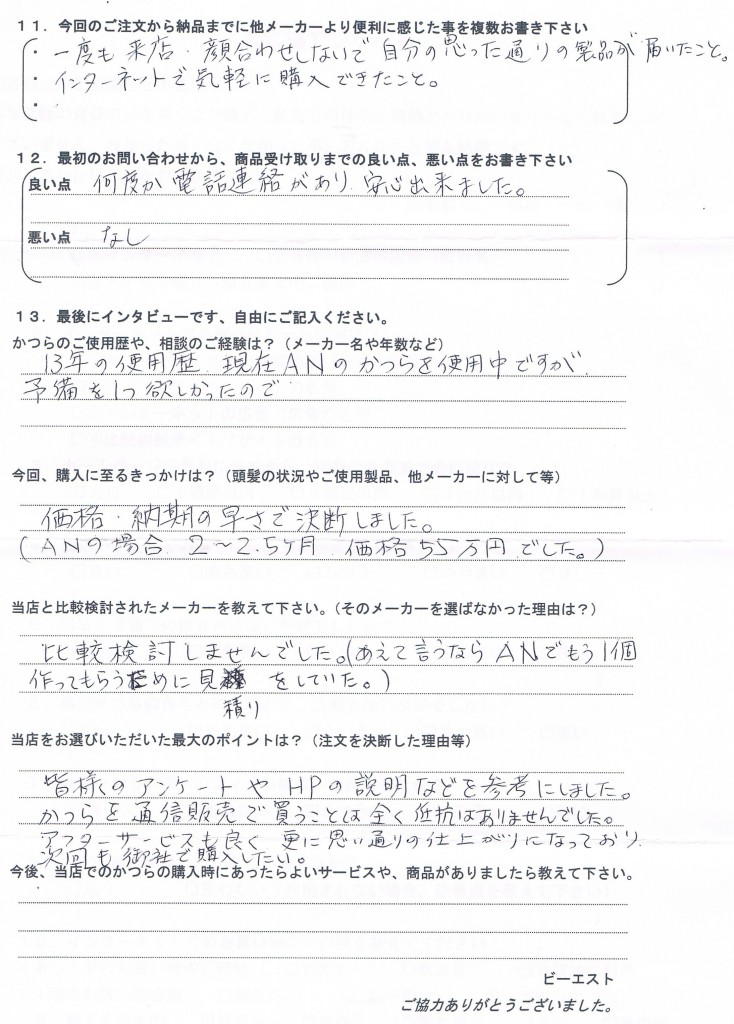 11．今回のご注文から納品までに他メーカーより便利に感じた事を複数お書き下さい
・一度も来店・顔合わせしないで自分の思った通りの製品が届いたこと。
・インターネットで気軽に購入できたこと。
・
12．最初のお問い合わせから、商品受け取りまでの良い点、悪い点をお書き下さい
良い点 何度か電話連絡があり、安心出来ました。
悪い点 なし
13．最後にインタビューです、自由にご記入ください。
かつらのご使用歴や、相談のご経験は？（メーカー名や年数など）
13年の使用歴、現在ANのかつらを使用中ですが、
予備を1つ欲しかったので
今回、購入に至るきっかけは？（頭髪の状況やご使用製品、他メーカーに対して等）
価格・納期の早さで決断しました。
（ANの場合 2〜2.5ヶ月 価格55万円でした。）
当店と比較検討されたメーカーを教えて下さい。（そのメーカーを選ばなかった理由は？）
比較検討しませんでした。（あえて言うならANでもう1個
作ってもらうために見 をしていた。）
積り
当店をお選びいただいた最大のポイントは？（注文を決断した理由等）
皆様のアンケートやHPの説明などを参考にしました。
かつらを通信販売で買うことは全く抵抗はありませんでした。
アフターサービスも良く、更に思い通りの仕上がりになっており、
次回も御社で購入したい。
今後、当店でのかつらの購入時にあったらよいサービスや、商品がありましたら教えて下さい。
ビーエスト
ご協力ありがとうございました。